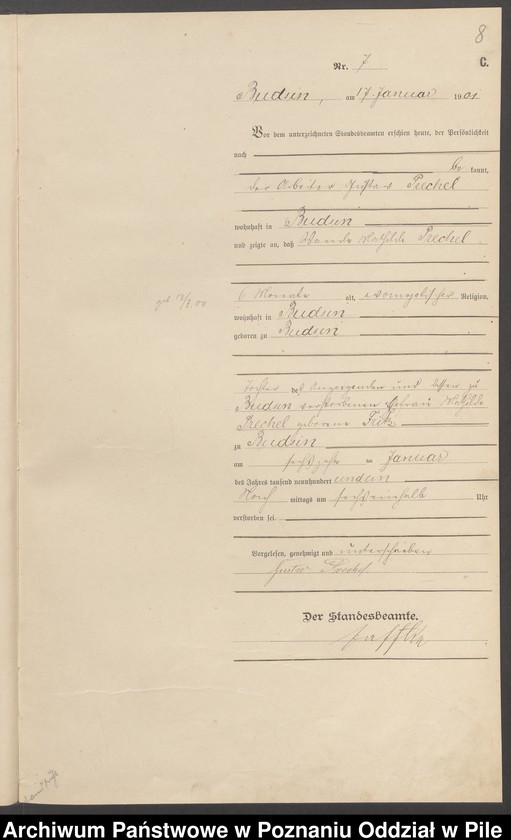 8
Nr. 7
C.
Budsin, am 17. Januar 1901
Vor dem unterzeichneten Standesbeamten erschien heute, der Persönlichkeit
nach
be kannt,
der Arbeiter Gustav Prechel
wohnhaft in Budsin
und zeigte an, daß Wanda Mathilde Prechel
6 Monate alt, evangelischer Religion,
geb 18/7.00
wohnhaft in Budsin
geboren zu Budsin
Tochter des Anzeigenden und dessen zu
Budsin verstorbenen Ehefrau Mathilde
Prechel geborene
zu Budsin
am sechszehn ten Januar
des Jahres tausend neunhundert undein
Nach mittags um sechseinhalb Uhr
verstorben sei.
Vorgelesen, genehmigt und unterschrieben
Gustav Prechel.
Der Standesbeamte.
Archiwum Państwowe w Poznaniu Oddział w Pile